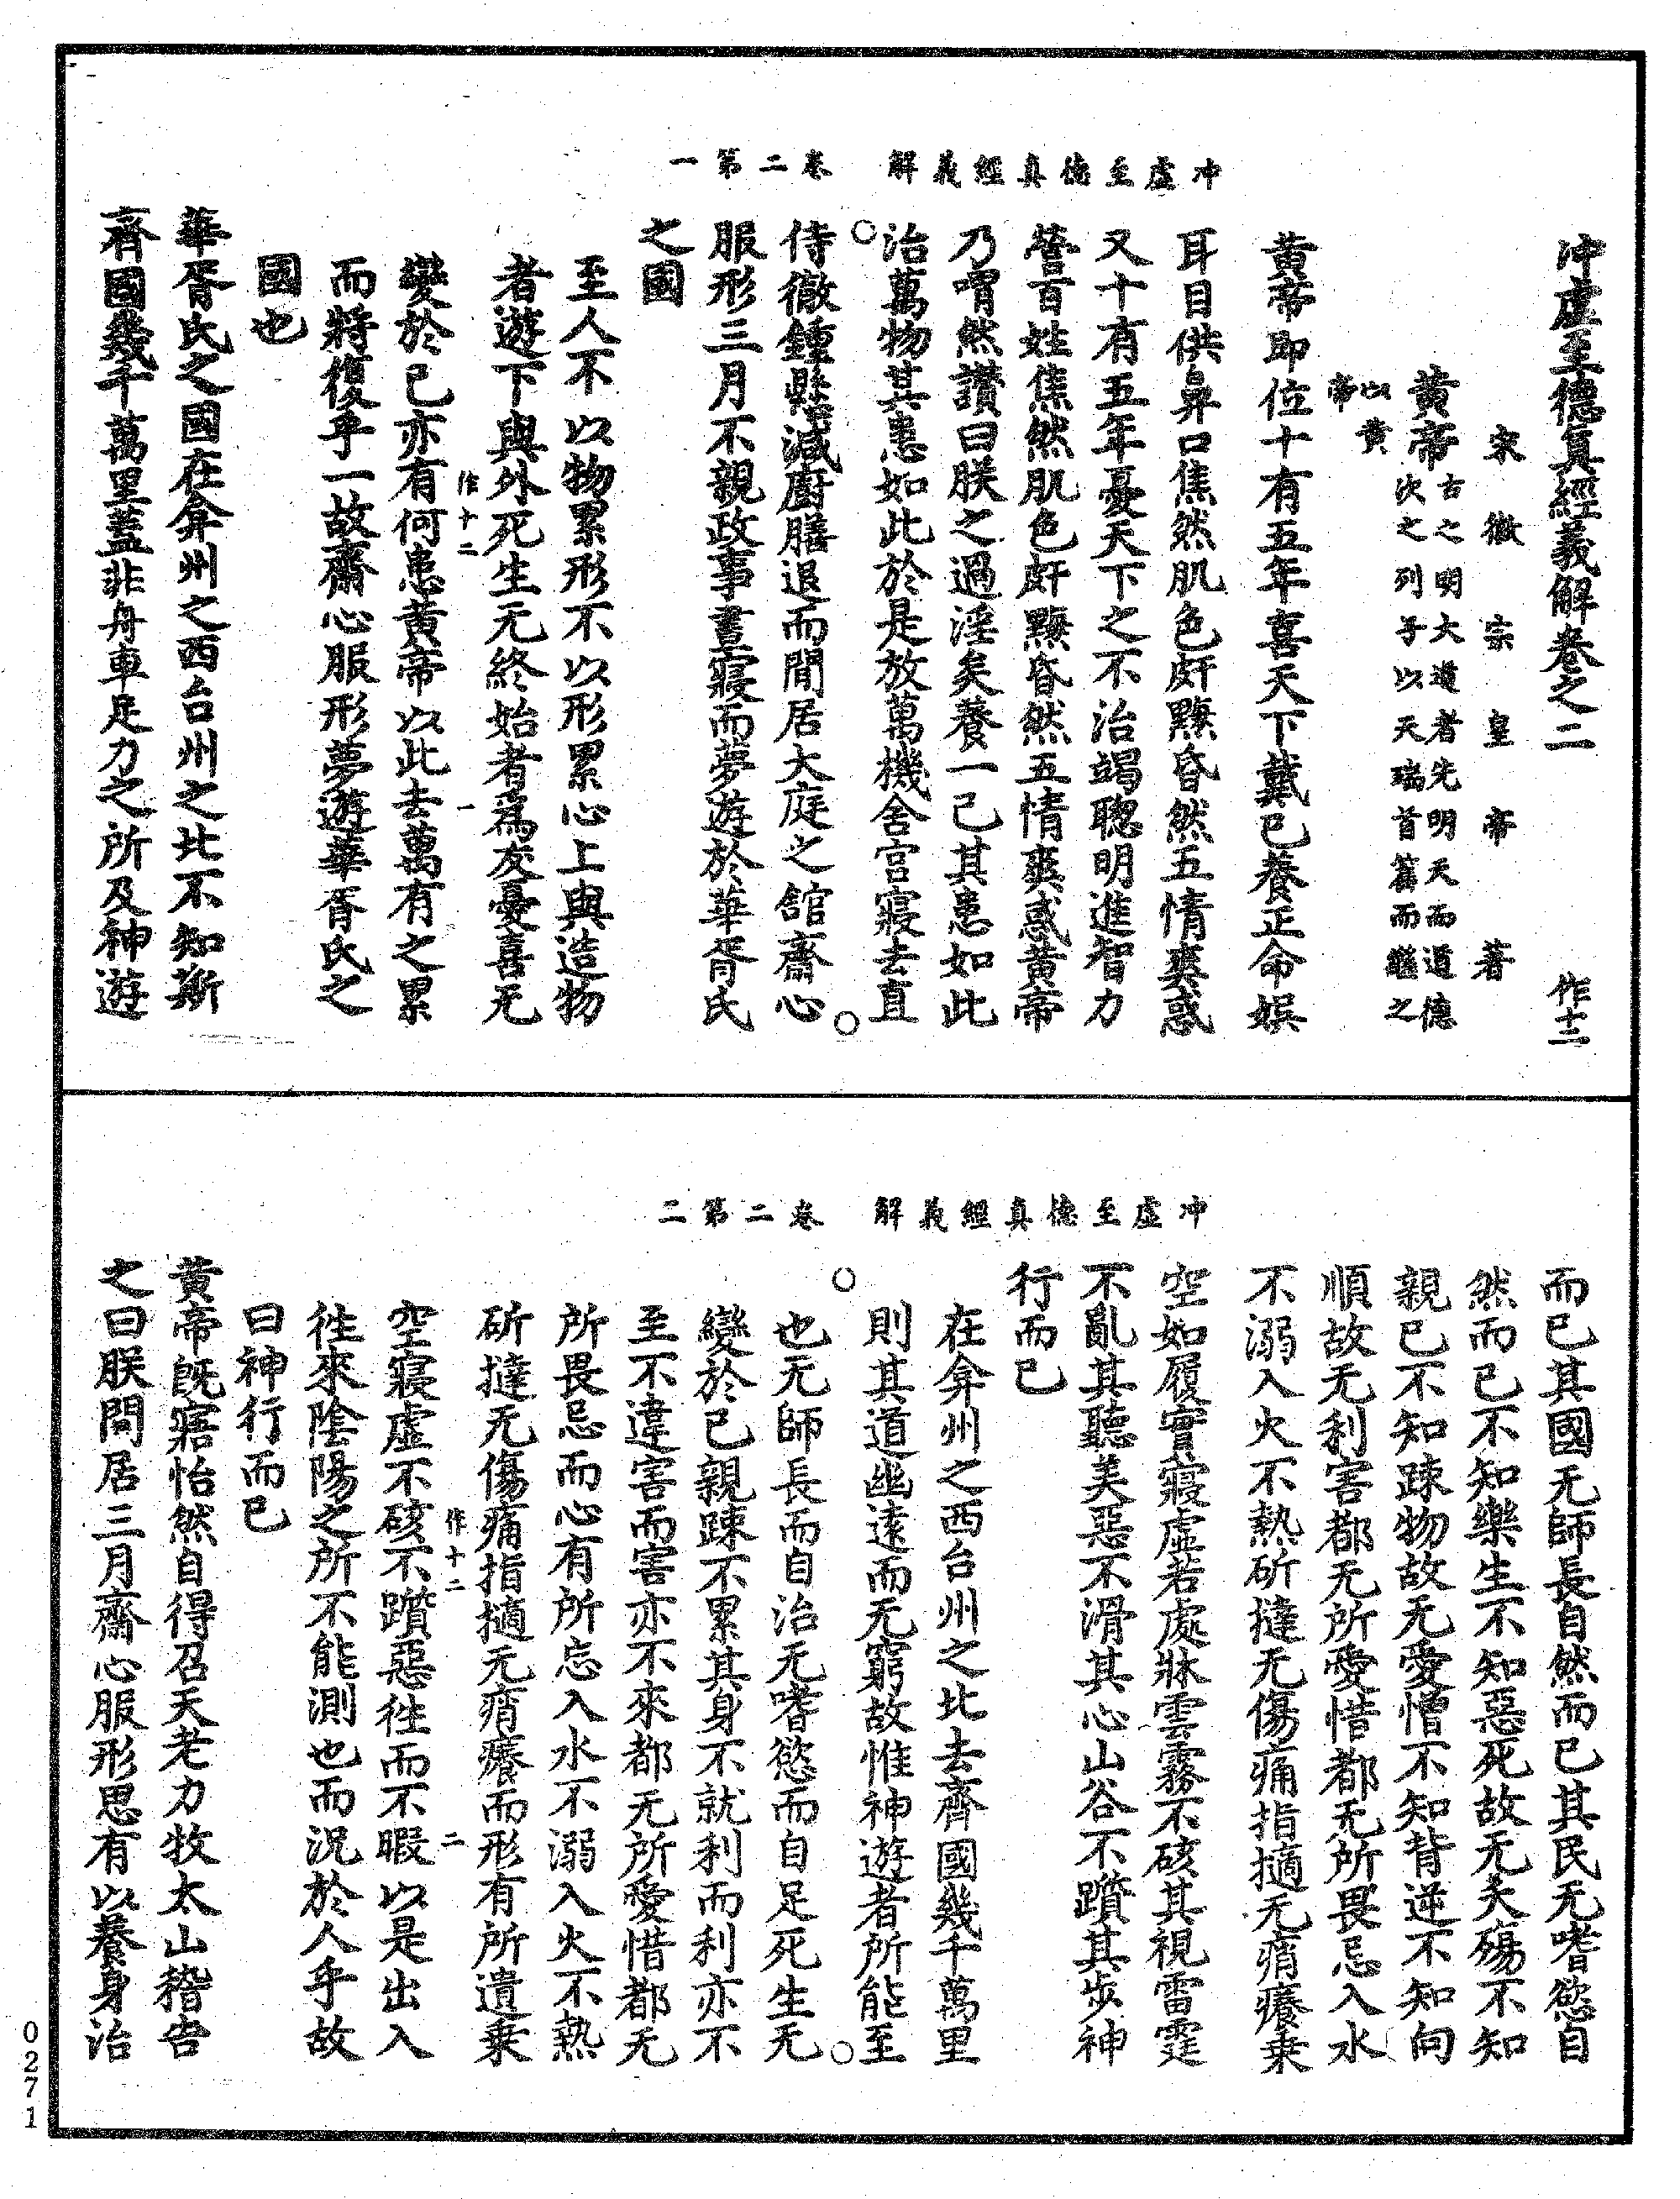 冲虛至德真經義解卷之二　作十二
宋徽宗皇帝著
黃帝古之明大道者先明天而道德
次之列子以天瑞首篇而繼之
以黃
帝
黃帝即位十有五年喜天下戴己養正命娛
耳目供鼻口焦然肌色皯黣昏然五情爽惑
又十有五年憂天下之不治竭聰明進智力
營百姓焦然肌色皯黣昏然五情爽惑黃帝
乃喟然讚曰朕之過淫矣養一己其患如此
治萬物其患如此於是放萬機舍宮寢去直
冲虛至德真經義解　卷二第一
侍徹鍾懸減廚膳退而閒居大庭之館齋心
服形三月不親政事晝寢而夢遊於華胥氏
之國
至人不以物累形不以形累心上與造物
者遊下與外死生无終始者為友憂喜无
作十二　一
變於己亦有何患黃帝以此去萬有之累
而將復乎一故齋心服形夢遊華胥氏之
國也
華胥氏之國在弇州之西台州之北不知斯
齊國幾千萬里蓋非舟車足力之所及神遊
而已其國无師長自然而已其民无嗜慾自
然而已不知樂生不知惡死故无夭殤不知
親己不知踈物故无愛憎不知背逆不知向
順故无利害都无所愛惜都无所畏忌入水
不溺入火不熱斫撻无傷痛指擿无痟癢乘
空如履實寢虛若處牀雲霧不硋其視雷霆
不亂其聽美惡不滑其心山谷不躓其步神
行而已
冲虛至德真經義解　卷二第二
在弇州之西台州之北去齊國幾千萬里
則其道幽遠而无窮故惟神遊者所能至
也无師長而自治无嗜慾而自足死生无
變於己親踈不累其身不就利而利亦不
至不違害而害亦不來都无所愛惜都无
所畏忌而心有所忘入水不溺入火不熱
斫撻无傷痛指擿无痟癢而形有所遺乘
作十二　二
空寢虛不硋不躓惡往而不暇以是出入
往來陰陽之所不能測也而況於人乎故
曰神行而已
黃帝既寤怡然自得召天老力牧太山稽告
之曰朕閒居三月齋心服形思有以養身治
0271